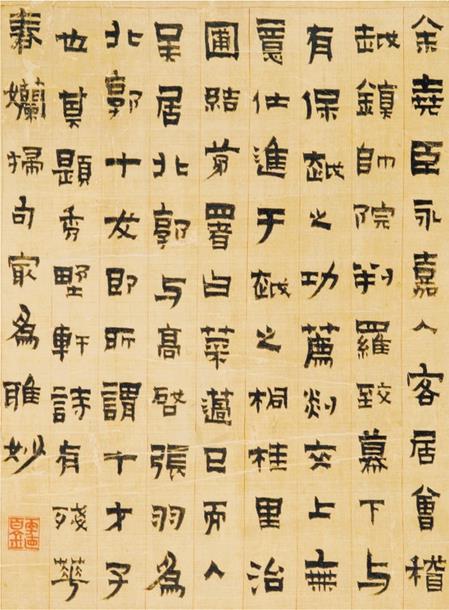 余堯臣永嘉人客居會稽
越鎮帥院判羅致幕下与
有保越之功薦剡交上無
意仕進于越之桐桂里治
圃結茆署曰菜薖已而入
吳居北郭与高啓張羽為
北郭十友即所謂十才子
也其題秀野軒詩有殘花
春嬾掃句冣為雋妙